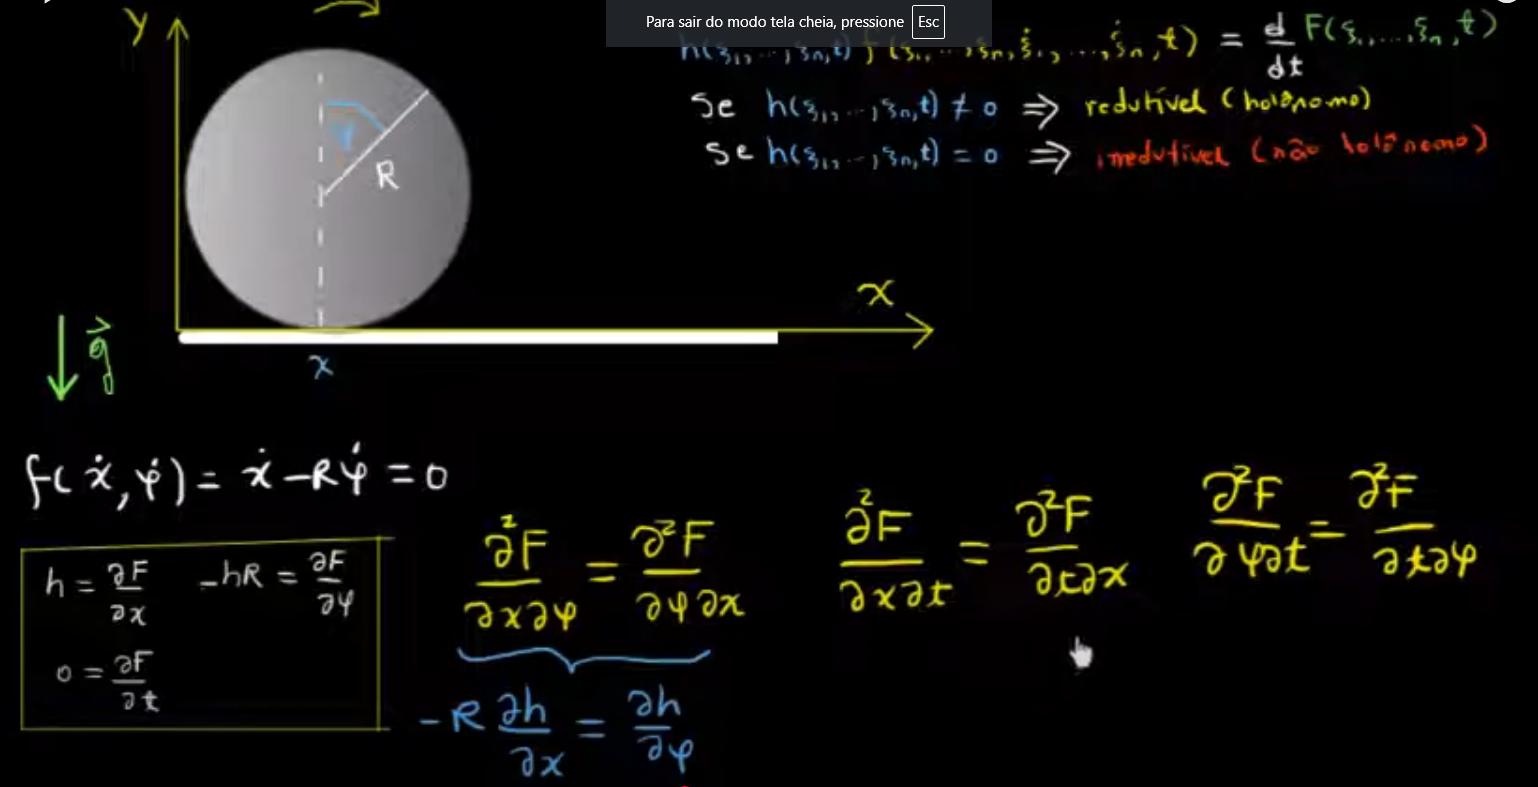 Para sair do modo tela cheia, pressione Esc
h(ξ₁, ..., ξₙ, t) f(ξ₁, ..., ξₙ, ξ̇₁, ..., ξ̇ₙ, t) = d/dt F(ξ₁, ..., ξₙ, t)
Se h(ξ₁, ..., ξₙ, t) ≠ 0 ⇒ redutível (holônomo)
Se h(ξ₁, ..., ξₙ, t) = 0 ⇒ irredutível (não holônomo)
Y
φ
R
x
x
g⃗
f(ẋ, φ̇) = ẋ - Rφ̇ = 0
h = ∂F/∂x -hR = ∂F/∂φ
0 = ∂F/∂t
∂²F/∂x∂φ = ∂²F/∂φ∂x
∂²F/∂x∂t = ∂²F/∂t∂x
∂²F/∂φ∂t = ∂²F/∂t∂φ
-R ∂h/∂x = ∂h/∂φ